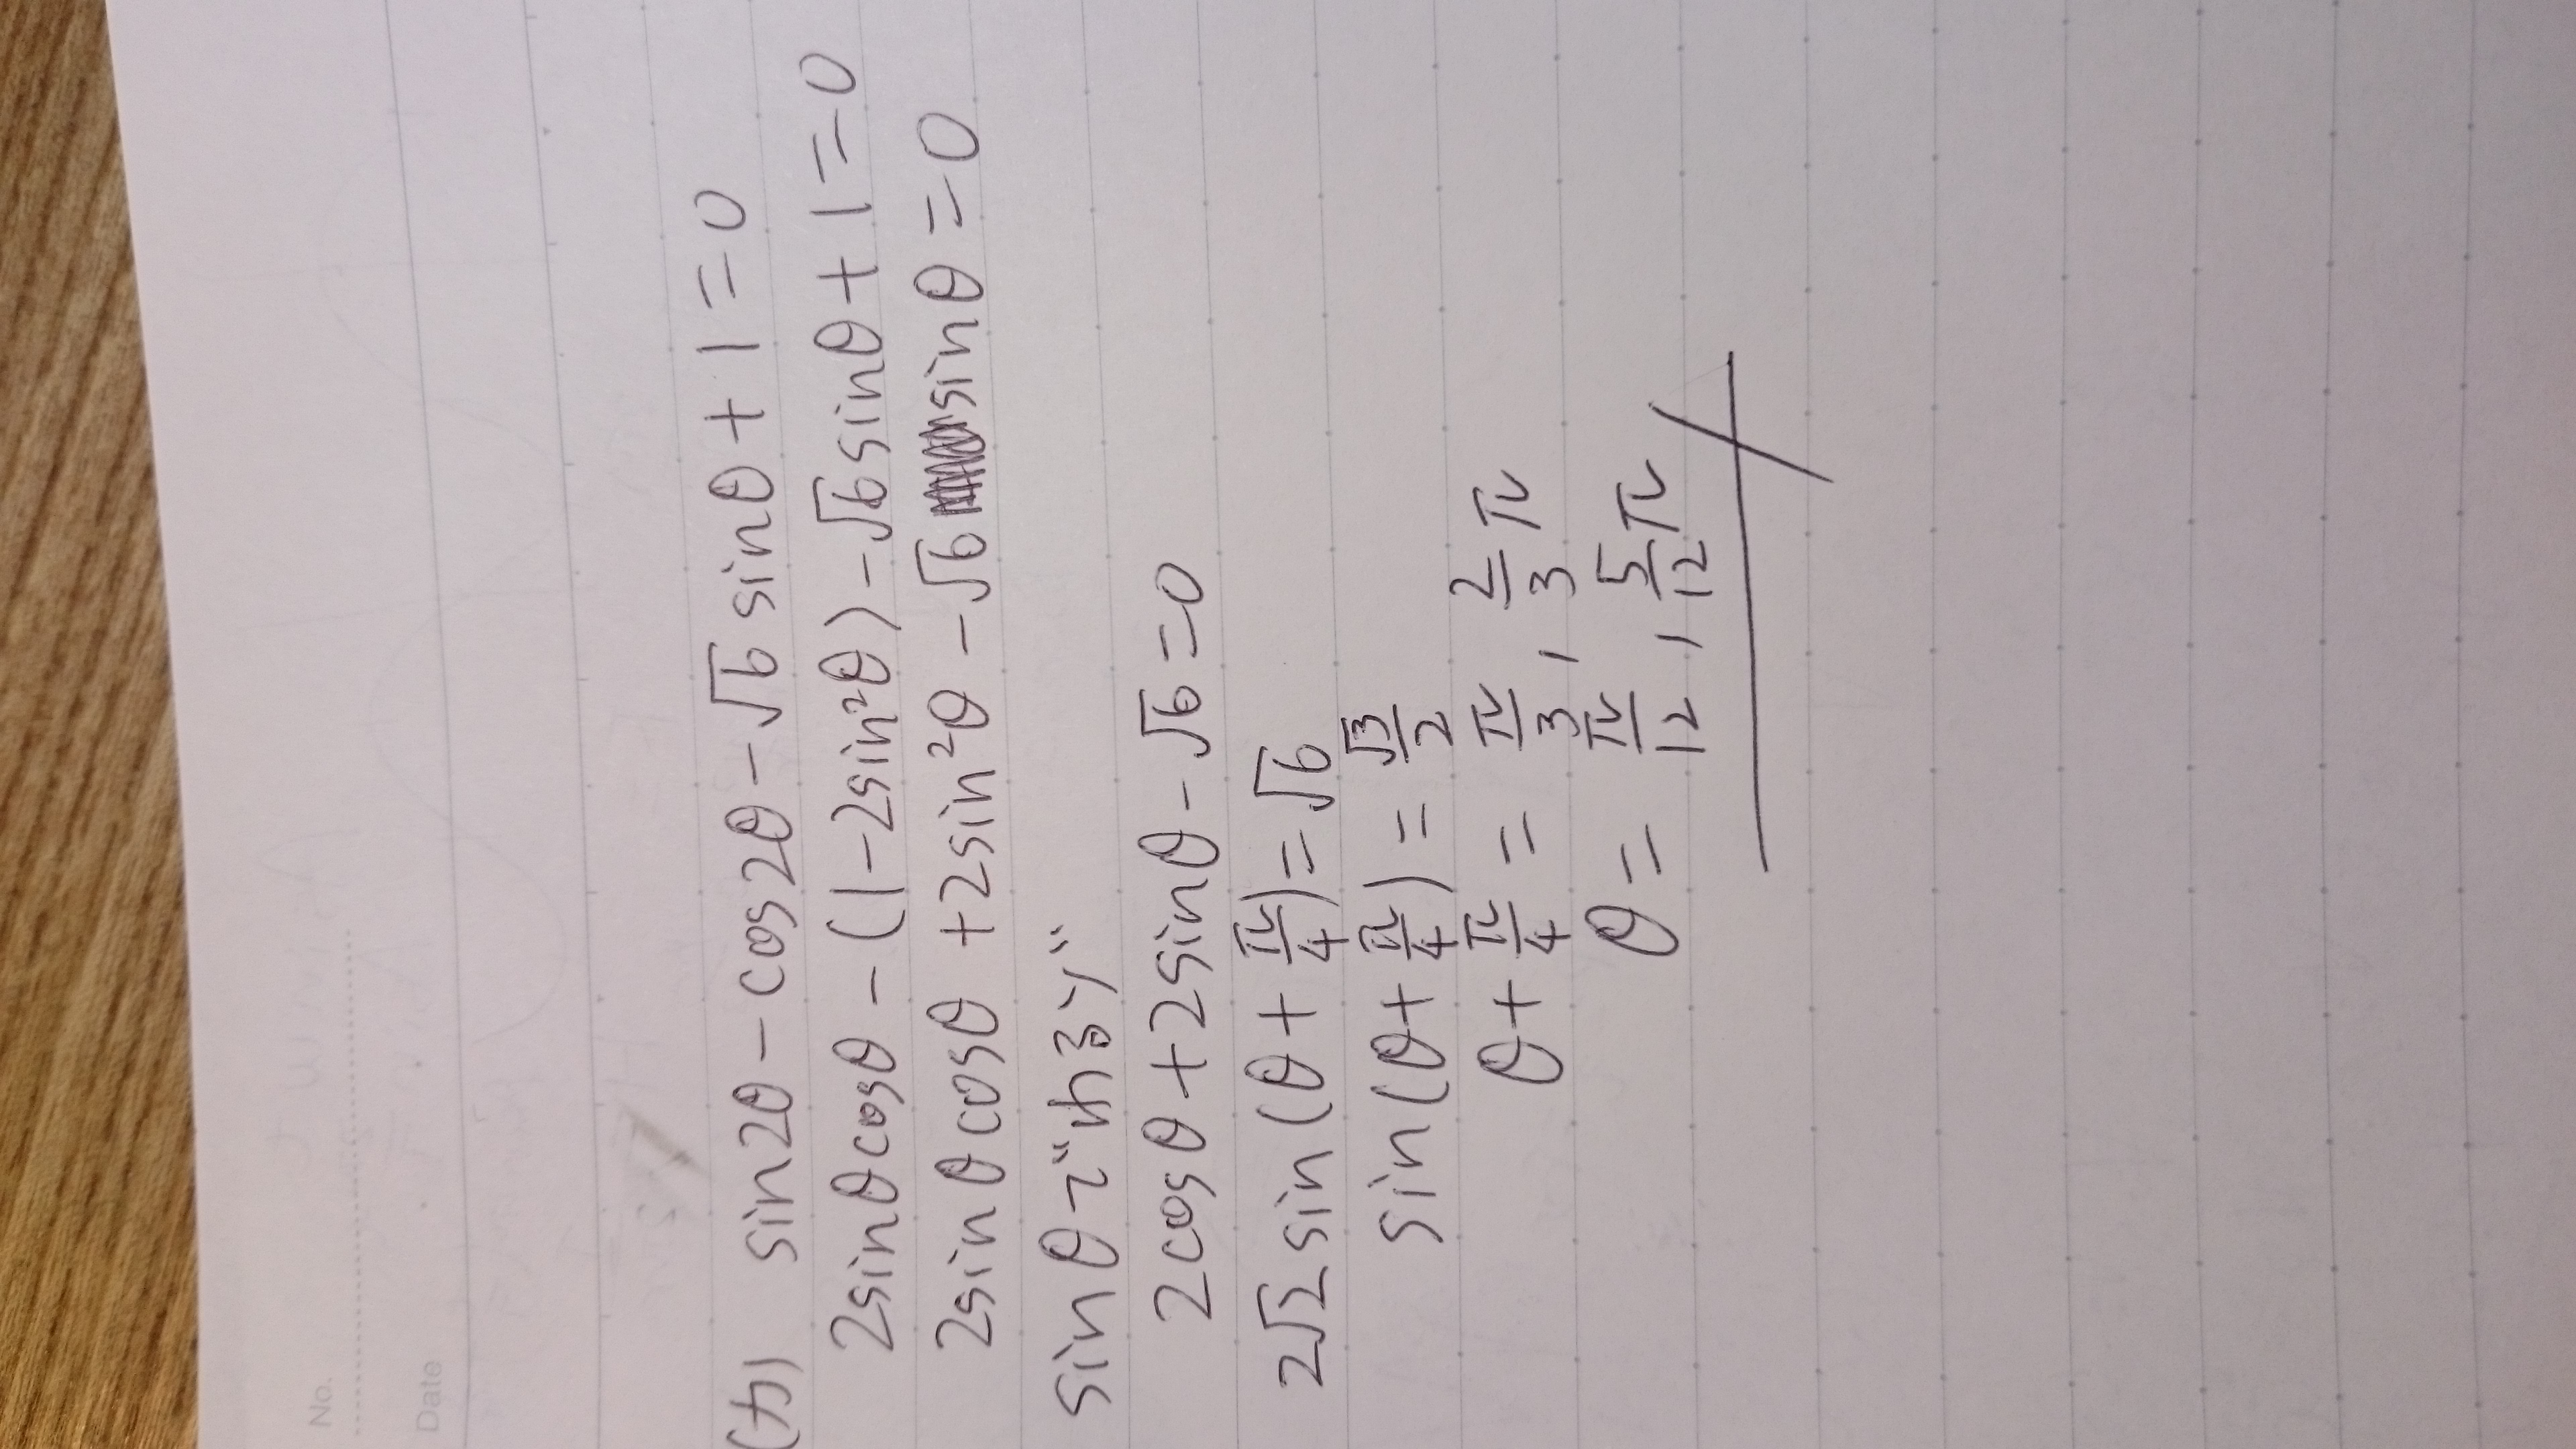 No.
Date
(サ) sin2θ-cos2θ-√6sinθ+1=0
2sinθcosθ-(1-2sin²θ)-√6sinθ+1=0
2sinθcosθ+2sin²θ-√6sinθ=0
sinθでわるy
2cosθ+2sinθ-√6=0
2√2sin(θ+π/4)=√6
sin(θ+π/4)=√3/2
θ+π/4=π/3,2/3π
θ=π/12,5/12π